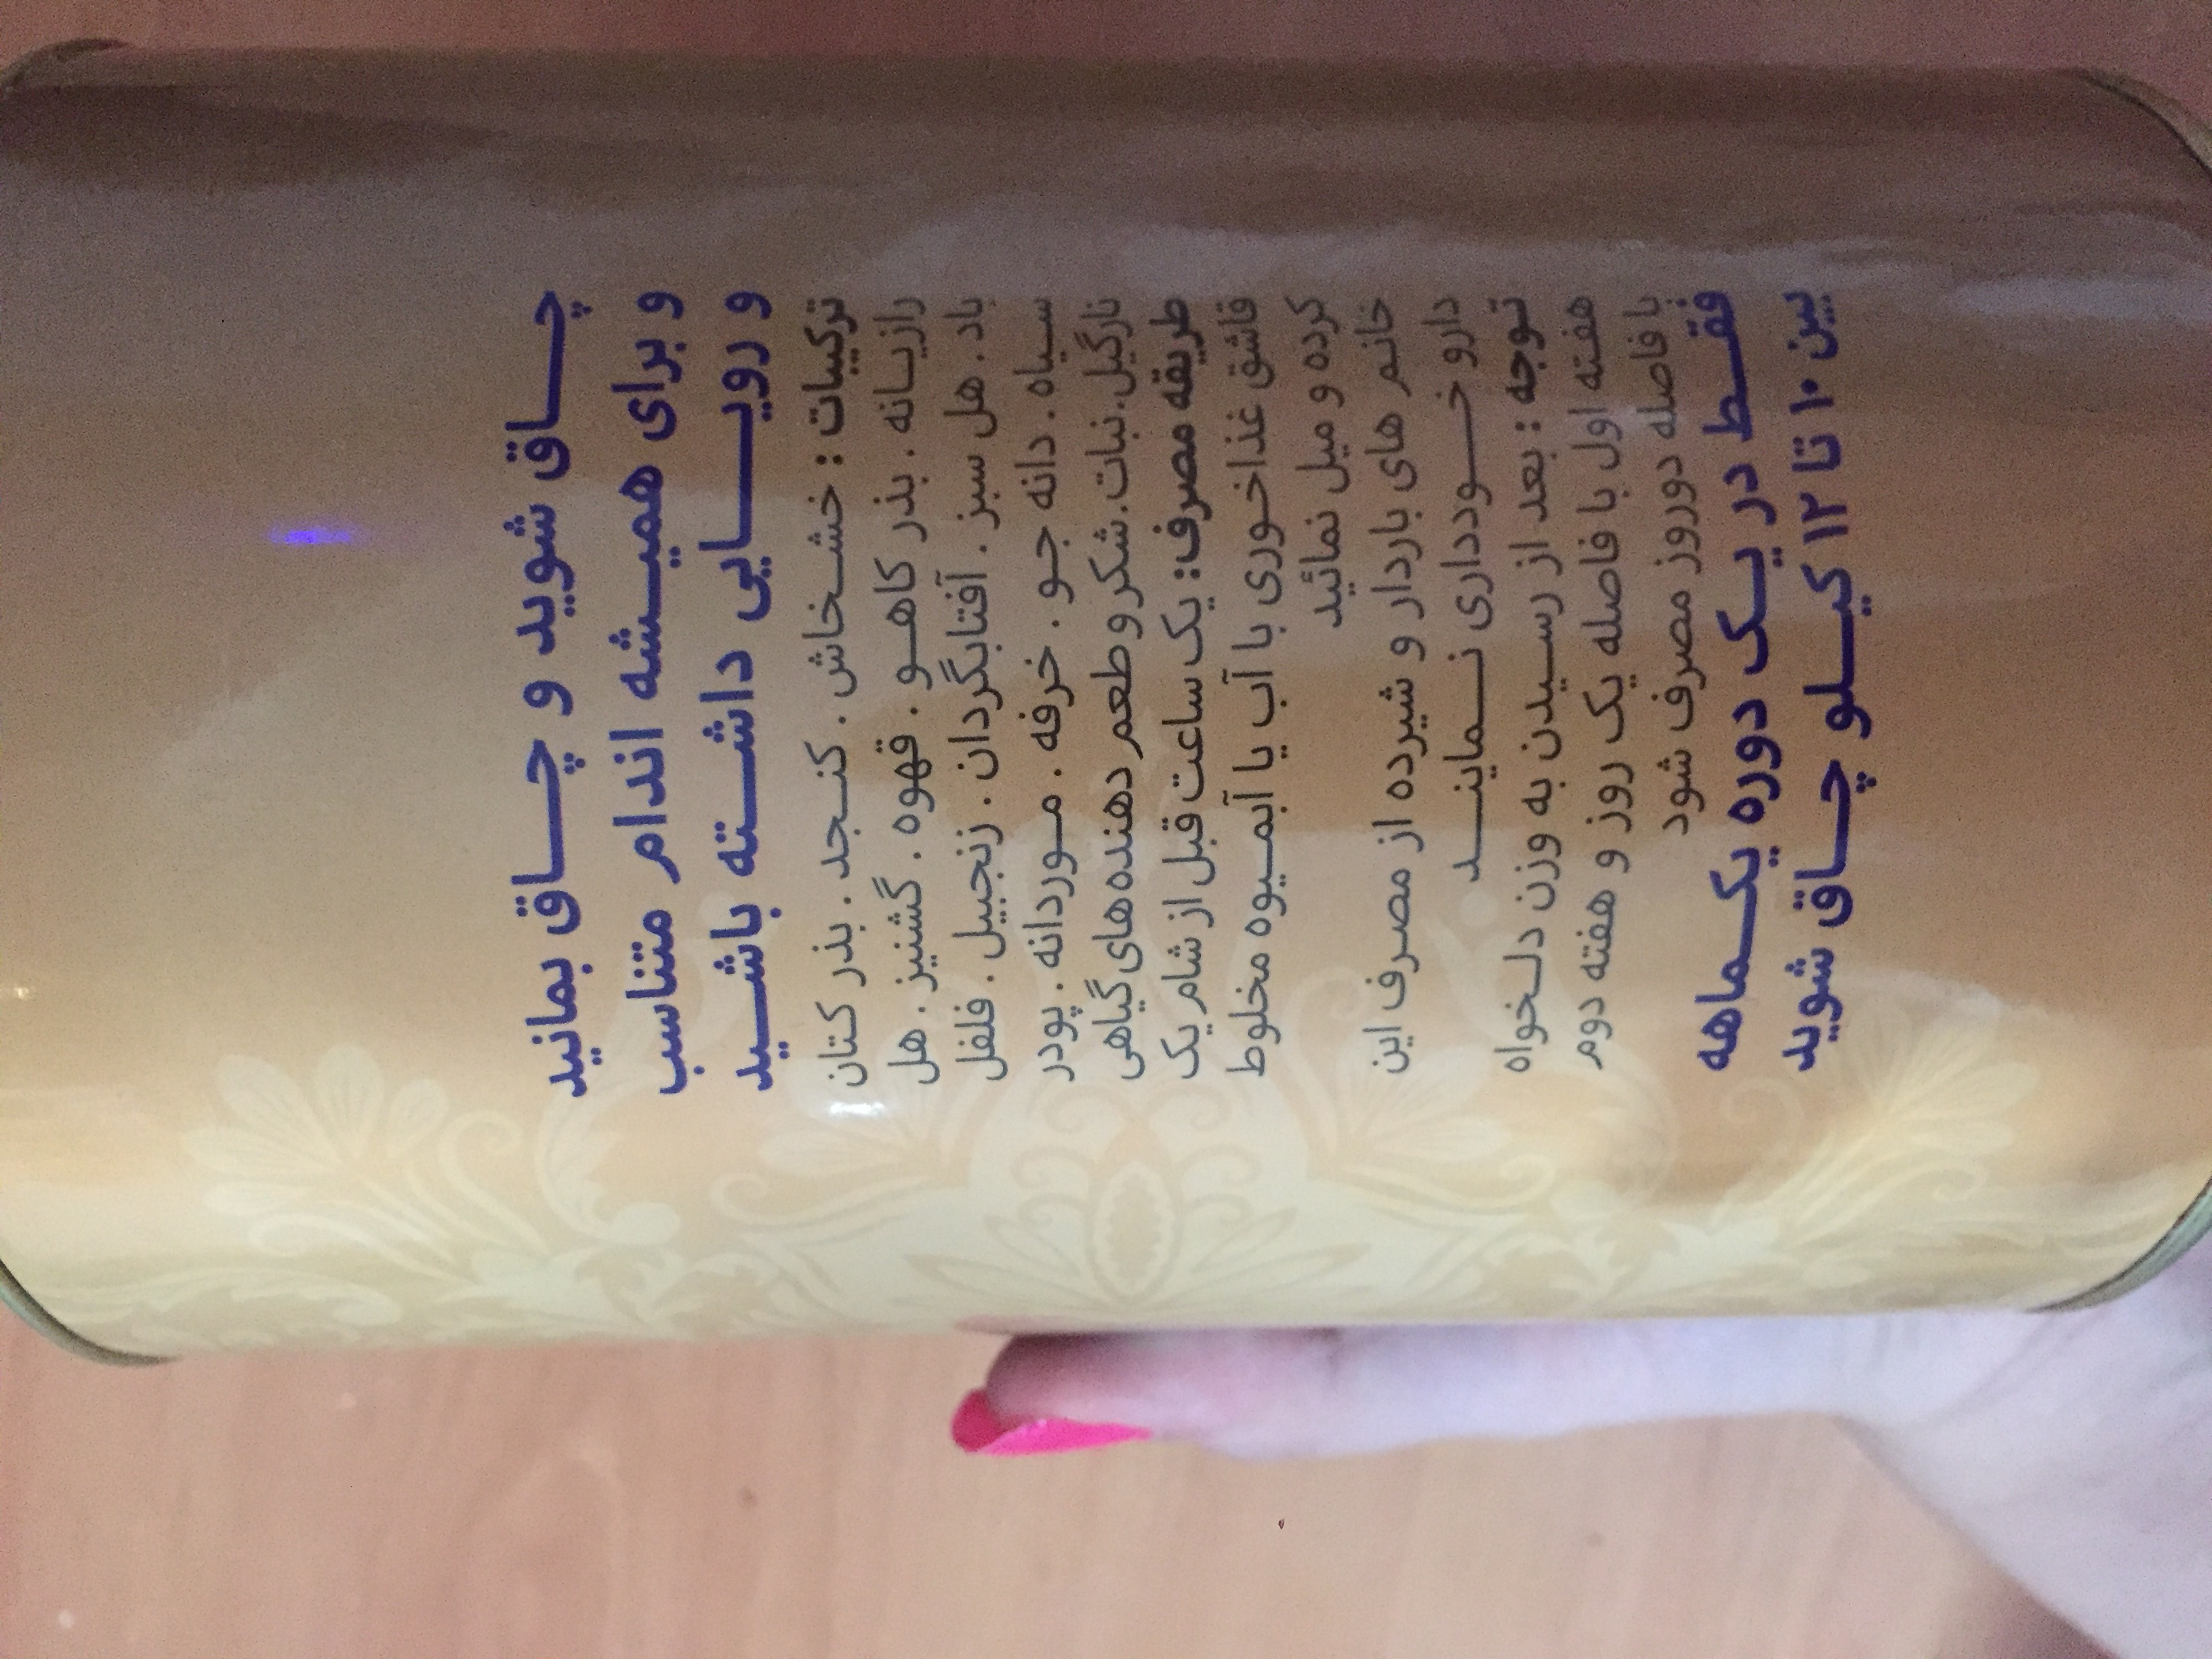 چاق شوید و چاق بمانید
و برای همیشه اندام متناسب
و رویایی داشته باشید
ترکیبات : خشخاش . کنجد . بذر کتان
رازیانه . بذر کاهو . قهوه . گشنیز . هل
باد . هل سبز . آفتابگردان . زنجبیل . فلفل
سیاه . دانه جو . خرفه . موردانه . پودر
نارگیل. نبات. شکر و طعم دهنده های گیاهی
طریقه مصرف: یک ساعت قبل از شام یک
قاشق غذاخوری با آب یا آبمیوه مخلوط
کرده و میل نمائید
خانم های باردار و شیرده از مصرف این
دارو خودداری نمایند
توجه : بعد از رسیدن به وزن دلخواه
هفته اول با فاصله یک روز و هفته دوم
با فاصله دوروز مصرف شود
فقط در یک دوره یکماهه
بین ۱۰ تا ۱۲ کیلو چاق شوید